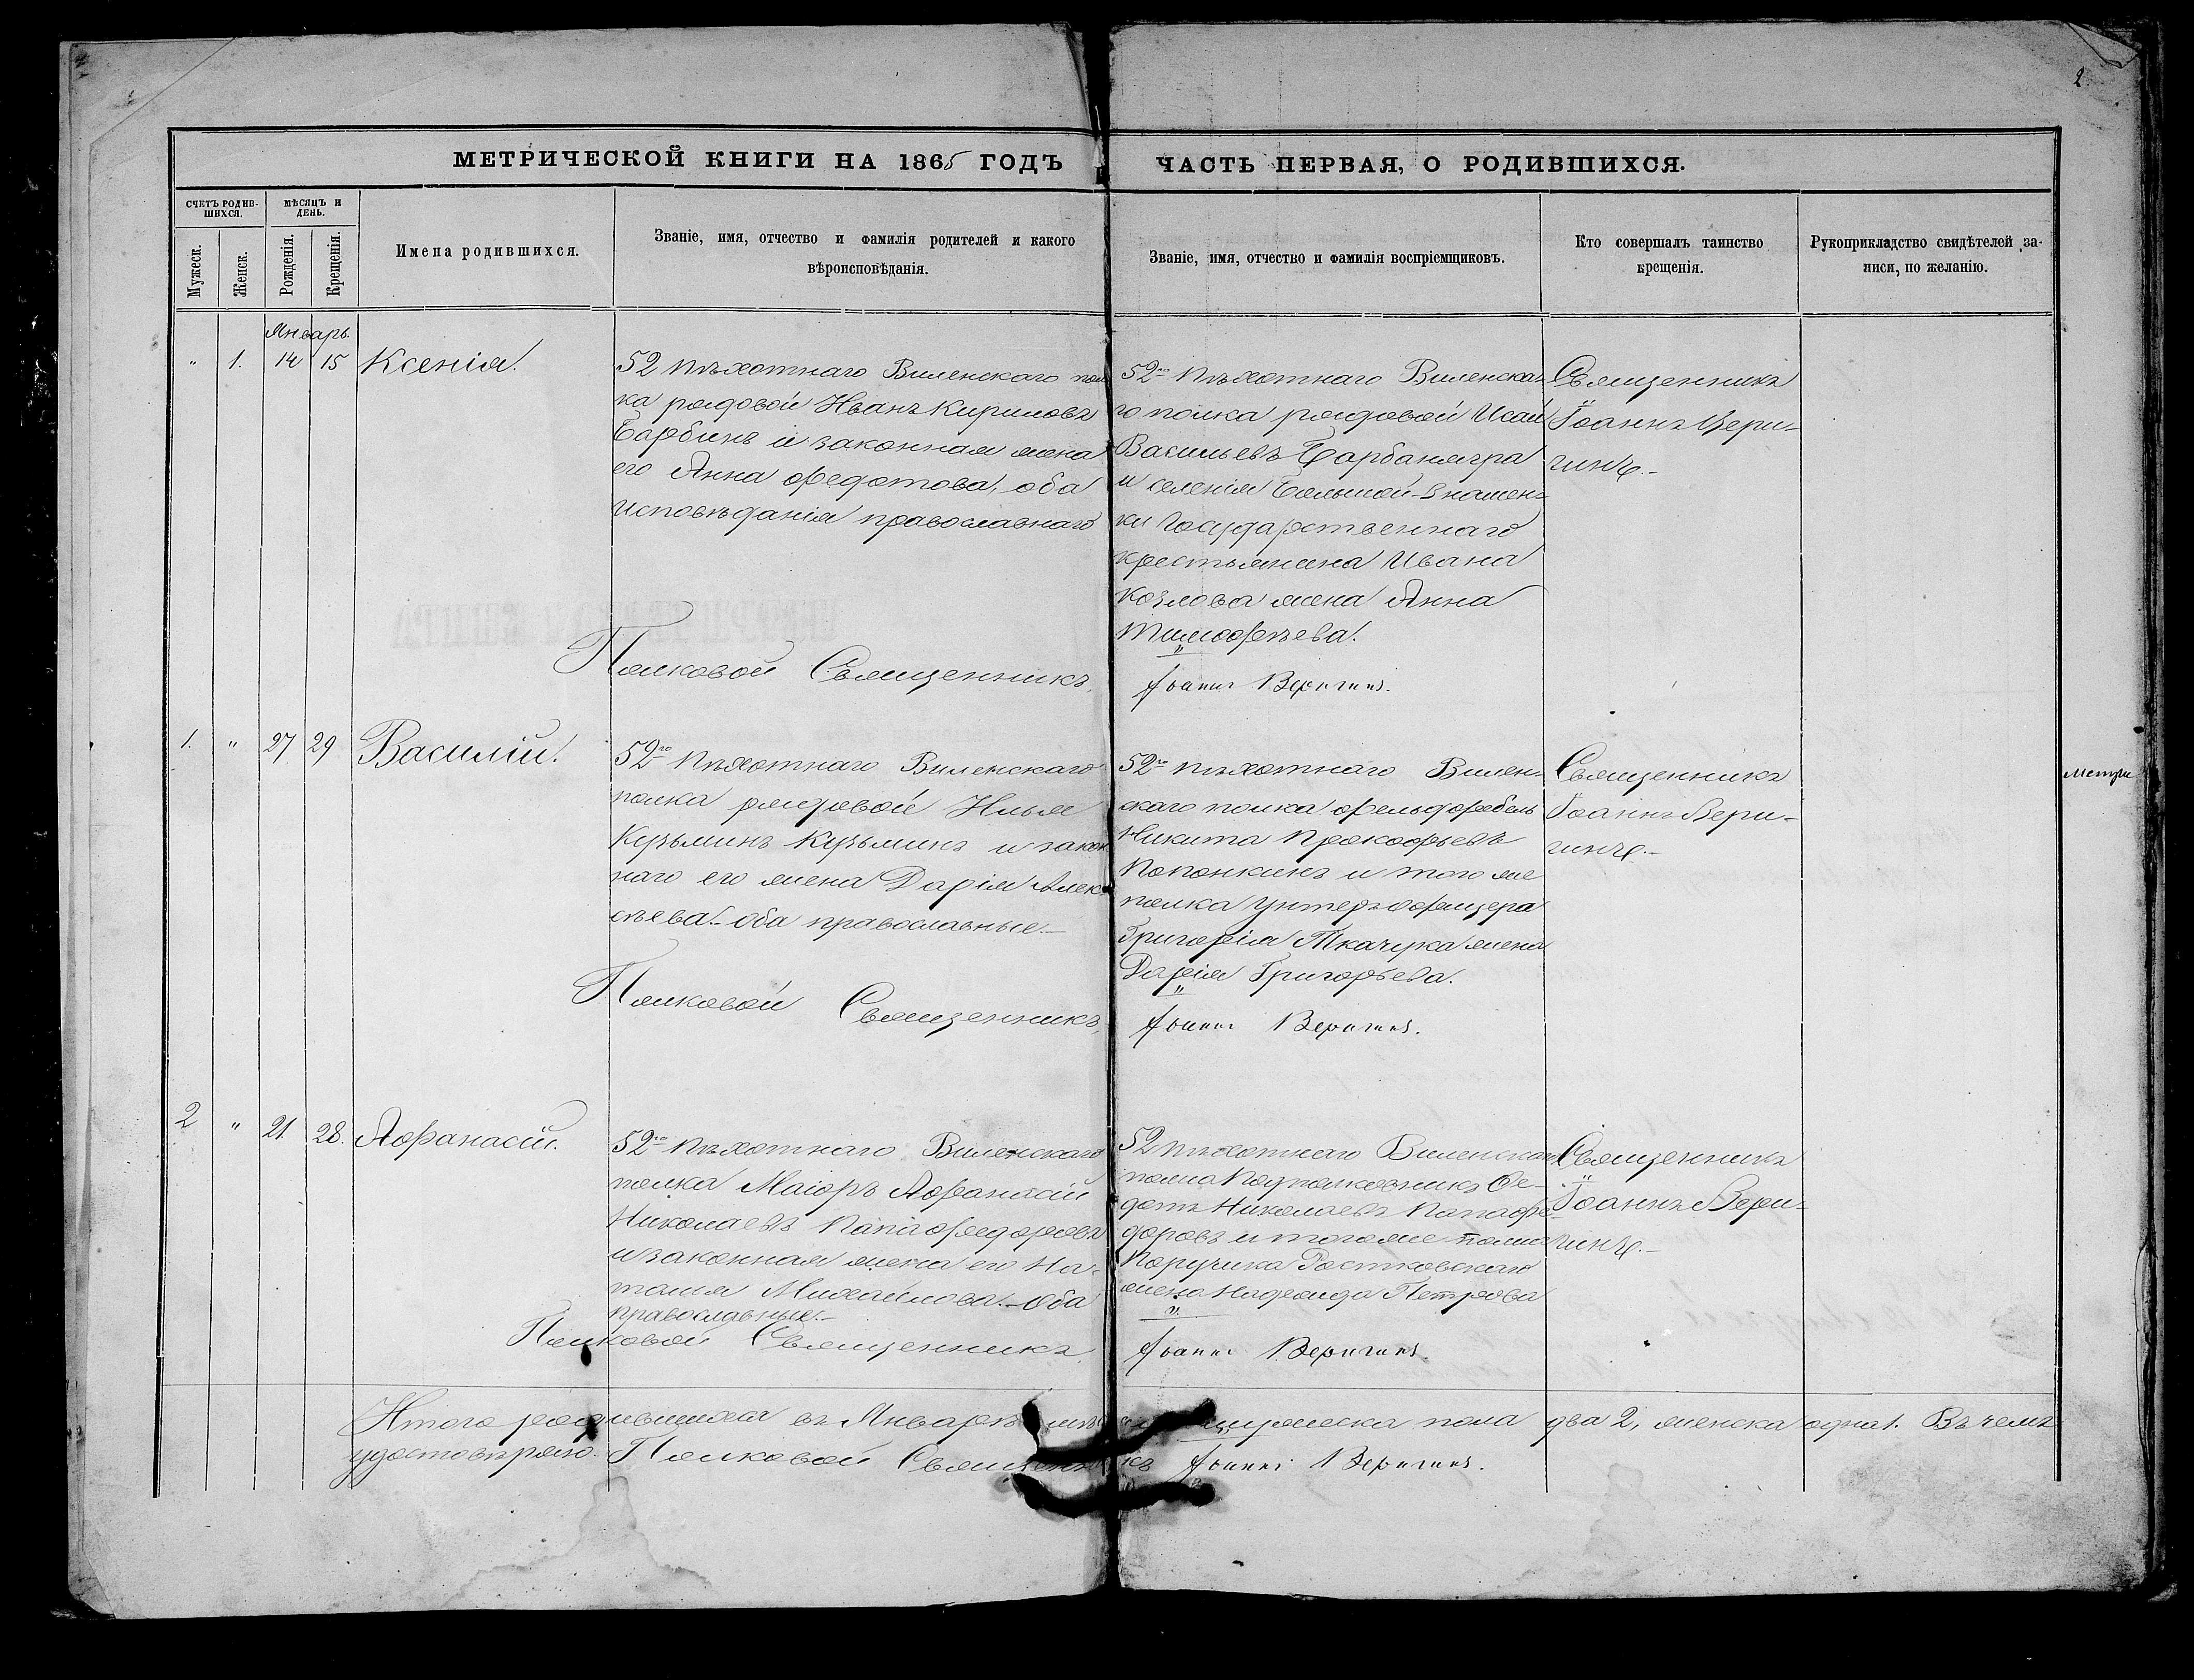 2
МЕТРИЧЕСКОЙ КНИГИ НА 1865 ГОДЪ
ЧАСТЬ ПЕРВАЯ, О РОДИВШИХСЯ.
СЧЕТЪ РОДИВ-
ШИХСЯ.
МѢСЯЦЪ И
ДЕНЬ.
Мужеск.
Женск.
Рожденія.
Крещенія.
Имена родившихся.
Званіе, имя, отчество и фамилія родителей и какого
вѣроисповѣданія.
Званіе, имя, отчество и фамилія воспріемщиковъ.
Кто совершалъ таинство
крещенія.
Рукоприкладство свидѣтелей за-
писи, по желанію.
Январь.
" 1. 14 15 Ксенія.
52 пѣхотнаго Виленскаго пол
ка рядовой Иванъ Кириловъ
Барбинъ и законная жена
его Анна Федотова, оба
исповѣданія православнаго
52го пѣхотнаго Виленска-
го полка рядовой Исай
Васильевъ
и селенія Большой-Знамен-
ки Государственнаго
крестьянина Ивана
Козлова жена Анна
Тимофѣева.
Священникъ
Іоаннъ Вери-
гинъ.-
Полковой Священникъ,
Іоаннъ Веригинъ.
1. " 27 29 Василій.
52го пѣхотнаго Виленскаго
полка рядовой Илья
Кузьминъ Кузьминъ и закон
наго его жена Дарія Алек-
сѣева.- Оба православные.-
52го пѣхотнаго Вилен-
скаго полка фельдфебель
Никита Прокофьевъ
Попонкинъ и того же
полка унтеръ-офицера
Григорія Ткачука жена
Дарія Григорьева.
Священникъ
Іоаннъ Вери-
гинъ.-
Метри
Полковой Священникъ,
Іоаннъ Веригинъ.
2 " 21. 28. Афанасій.
52го пѣхотнаго Виленскаго
полка Маіоръ Афанасій
Николаевъ Папафедоровъ
и законная жена его На-
талія Михайлова.- Оба
православные.-
52 пѣхотнаго Виленскаго
полка Подполковникъ Фе-
дотъ Николаевъ Папафе-
доровъ и того же полка
Поручика Ростковскаго
жена Надежда Петрова
Священникъ
Іоаннъ Вери-
гинъ.-
Полковой Священникъ
Іоаннъ Веригинъ.
Итого родившихся въ Январѣ мѣ мужеска пола два 2, женска одна 1. Въ чемъ
удостовѣряю. Полковой Священникъ Іоаннъ Веригинъ.